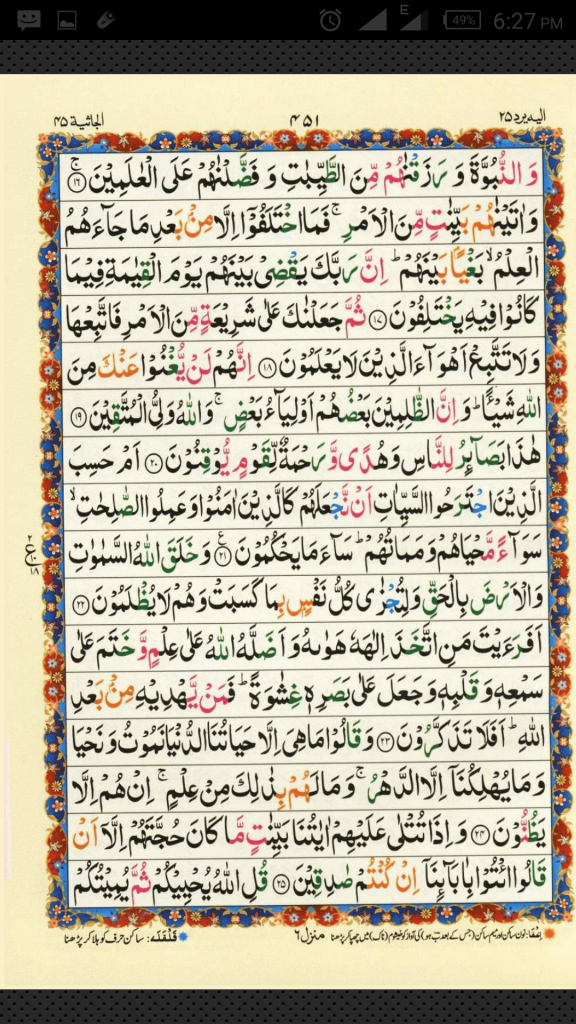 49% 6:27 PM
الیه یرد ۲۵
۴۵۱
الجاثیة ۴۵
وَ النُّبُوَّةَ وَ رَزَقْنٰهُمْ مِّنَ الطَّیِّبٰتِ وَ فَضَّلْنٰهُمْ عَلَى الْعٰلَمِیْنَ ۚ﴿۱۶﴾
وَ اٰتَیْنٰهُمْ بَیِّنٰتٍ مِّنَ الْاَمْرِ ۚ فَمَا اخْتَلَفُوْۤا اِلَّا مِنْۢ بَعْدِ مَا جَآءَهُمُ
الْعِلْمُ ۙ بَغْیًۢا بَیْنَهُمْ ؕ اِنَّ رَبَّكَ یَقْضِیْ بَیْنَهُمْ یَوْمَ الْقِیٰمَةِ فِیْمَا
كَانُوْا فِیْهِ یَخْتَلِفُوْنَ ﴿۱۷﴾ ثُمَّ جَعَلْنٰكَ عَلٰى شَرِیْعَةٍ مِّنَ الْاَمْرِ فَاتَّبِعْهَا
وَ لَا تَتَّبِعْ اَهْوَآءَ الَّذِیْنَ لَا یَعْلَمُوْنَ ﴿۱۸﴾ اِنَّهُمْ لَنْ یُّغْنُوْا عَنْكَ مِنَ
اللّٰهِ شَیْـًٔا ؕ وَ اِنَّ الظّٰلِمِیْنَ بَعْضُهُمْ اَوْلِیَآءُ بَعْضٍ ۚ وَ اللّٰهُ وَلِیُّ الْمُتَّقِیْنَ ﴿۱۹﴾
هٰذَا بَصَآىِٕرُ لِلنَّاسِ وَ هُدًى وَّ رَحْمَةٌ لِّقَوْمٍ یُّوْقِنُوْنَ ﴿۲۰﴾ اَمْ حَسِبَ
الَّذِیْنَ اجْتَرَحُوا السَّیِّاٰتِ اَنْ نَّجْعَلَهُمْ كَالَّذِیْنَ اٰمَنُوْا وَ عَمِلُوا الصّٰلِحٰتِ ۙ
سَوَآءً مَّحْیَاهُمْ وَ مَمَاتُهُمْ ؕ سَآءَ مَا یَحْكُمُوْنَ ﴿۲۱﴾ؑ وَ خَلَقَ اللّٰهُ السَّمٰوٰتِ
وَ الْاَرْضَ بِالْحَقِّ وَ لِتُجْزٰى كُلُّ نَفْسٍۭ بِمَا كَسَبَتْ وَ هُمْ لَا یُظْلَمُوْنَ ﴿۲۲﴾
اَفَرَءَیْتَ مَنِ اتَّخَذَ اِلٰهَهٗ هَوٰىهُ وَ اَضَلَّهُ اللّٰهُ عَلٰى عِلْمٍ وَّ خَتَمَ عَلٰى
سَمْعِهٖ وَ قَلْبِهٖ وَ جَعَلَ عَلٰى بَصَرِهٖ غِشٰوَةً ؕ فَمَنْ یَّهْدِیْهِ مِنْۢ بَعْدِ
اللّٰهِ ؕ اَفَلَا تَذَكَّرُوْنَ ﴿۲۳﴾ وَ قَالُوْا مَا هِیَ اِلَّا حَیَاتُنَا الدُّنْیَا نَمُوْتُ وَ نَحْیَا
وَ مَا یُهْلِكُنَاۤ اِلَّا الدَّهْرُ ۚ وَ مَا لَهُمْ بِذٰلِكَ مِنْ عِلْمٍ ۚ اِنْ هُمْ اِلَّا
یَظُنُّوْنَ ﴿۲۴﴾ وَ اِذَا تُتْلٰى عَلَیْهِمْ اٰیٰتُنَا بَیِّنٰتٍ مَّا كَانَ حُجَّتَهُمْ اِلَّاۤ اَنْ
قَالُوا ائْتُوْا بِاٰبَآىِٕنَاۤ اِنْ كُنْتُمْ صٰدِقِیْنَ ﴿۲۵﴾ قُلِ اللّٰهُ یُحْیِیْكُمْ ثُمَّ یُمِیْتُكُمْ
۲
ع
۱۸
منزل ۶
قلقلہ: ساکن حرف کو ہلا کر پڑھنا